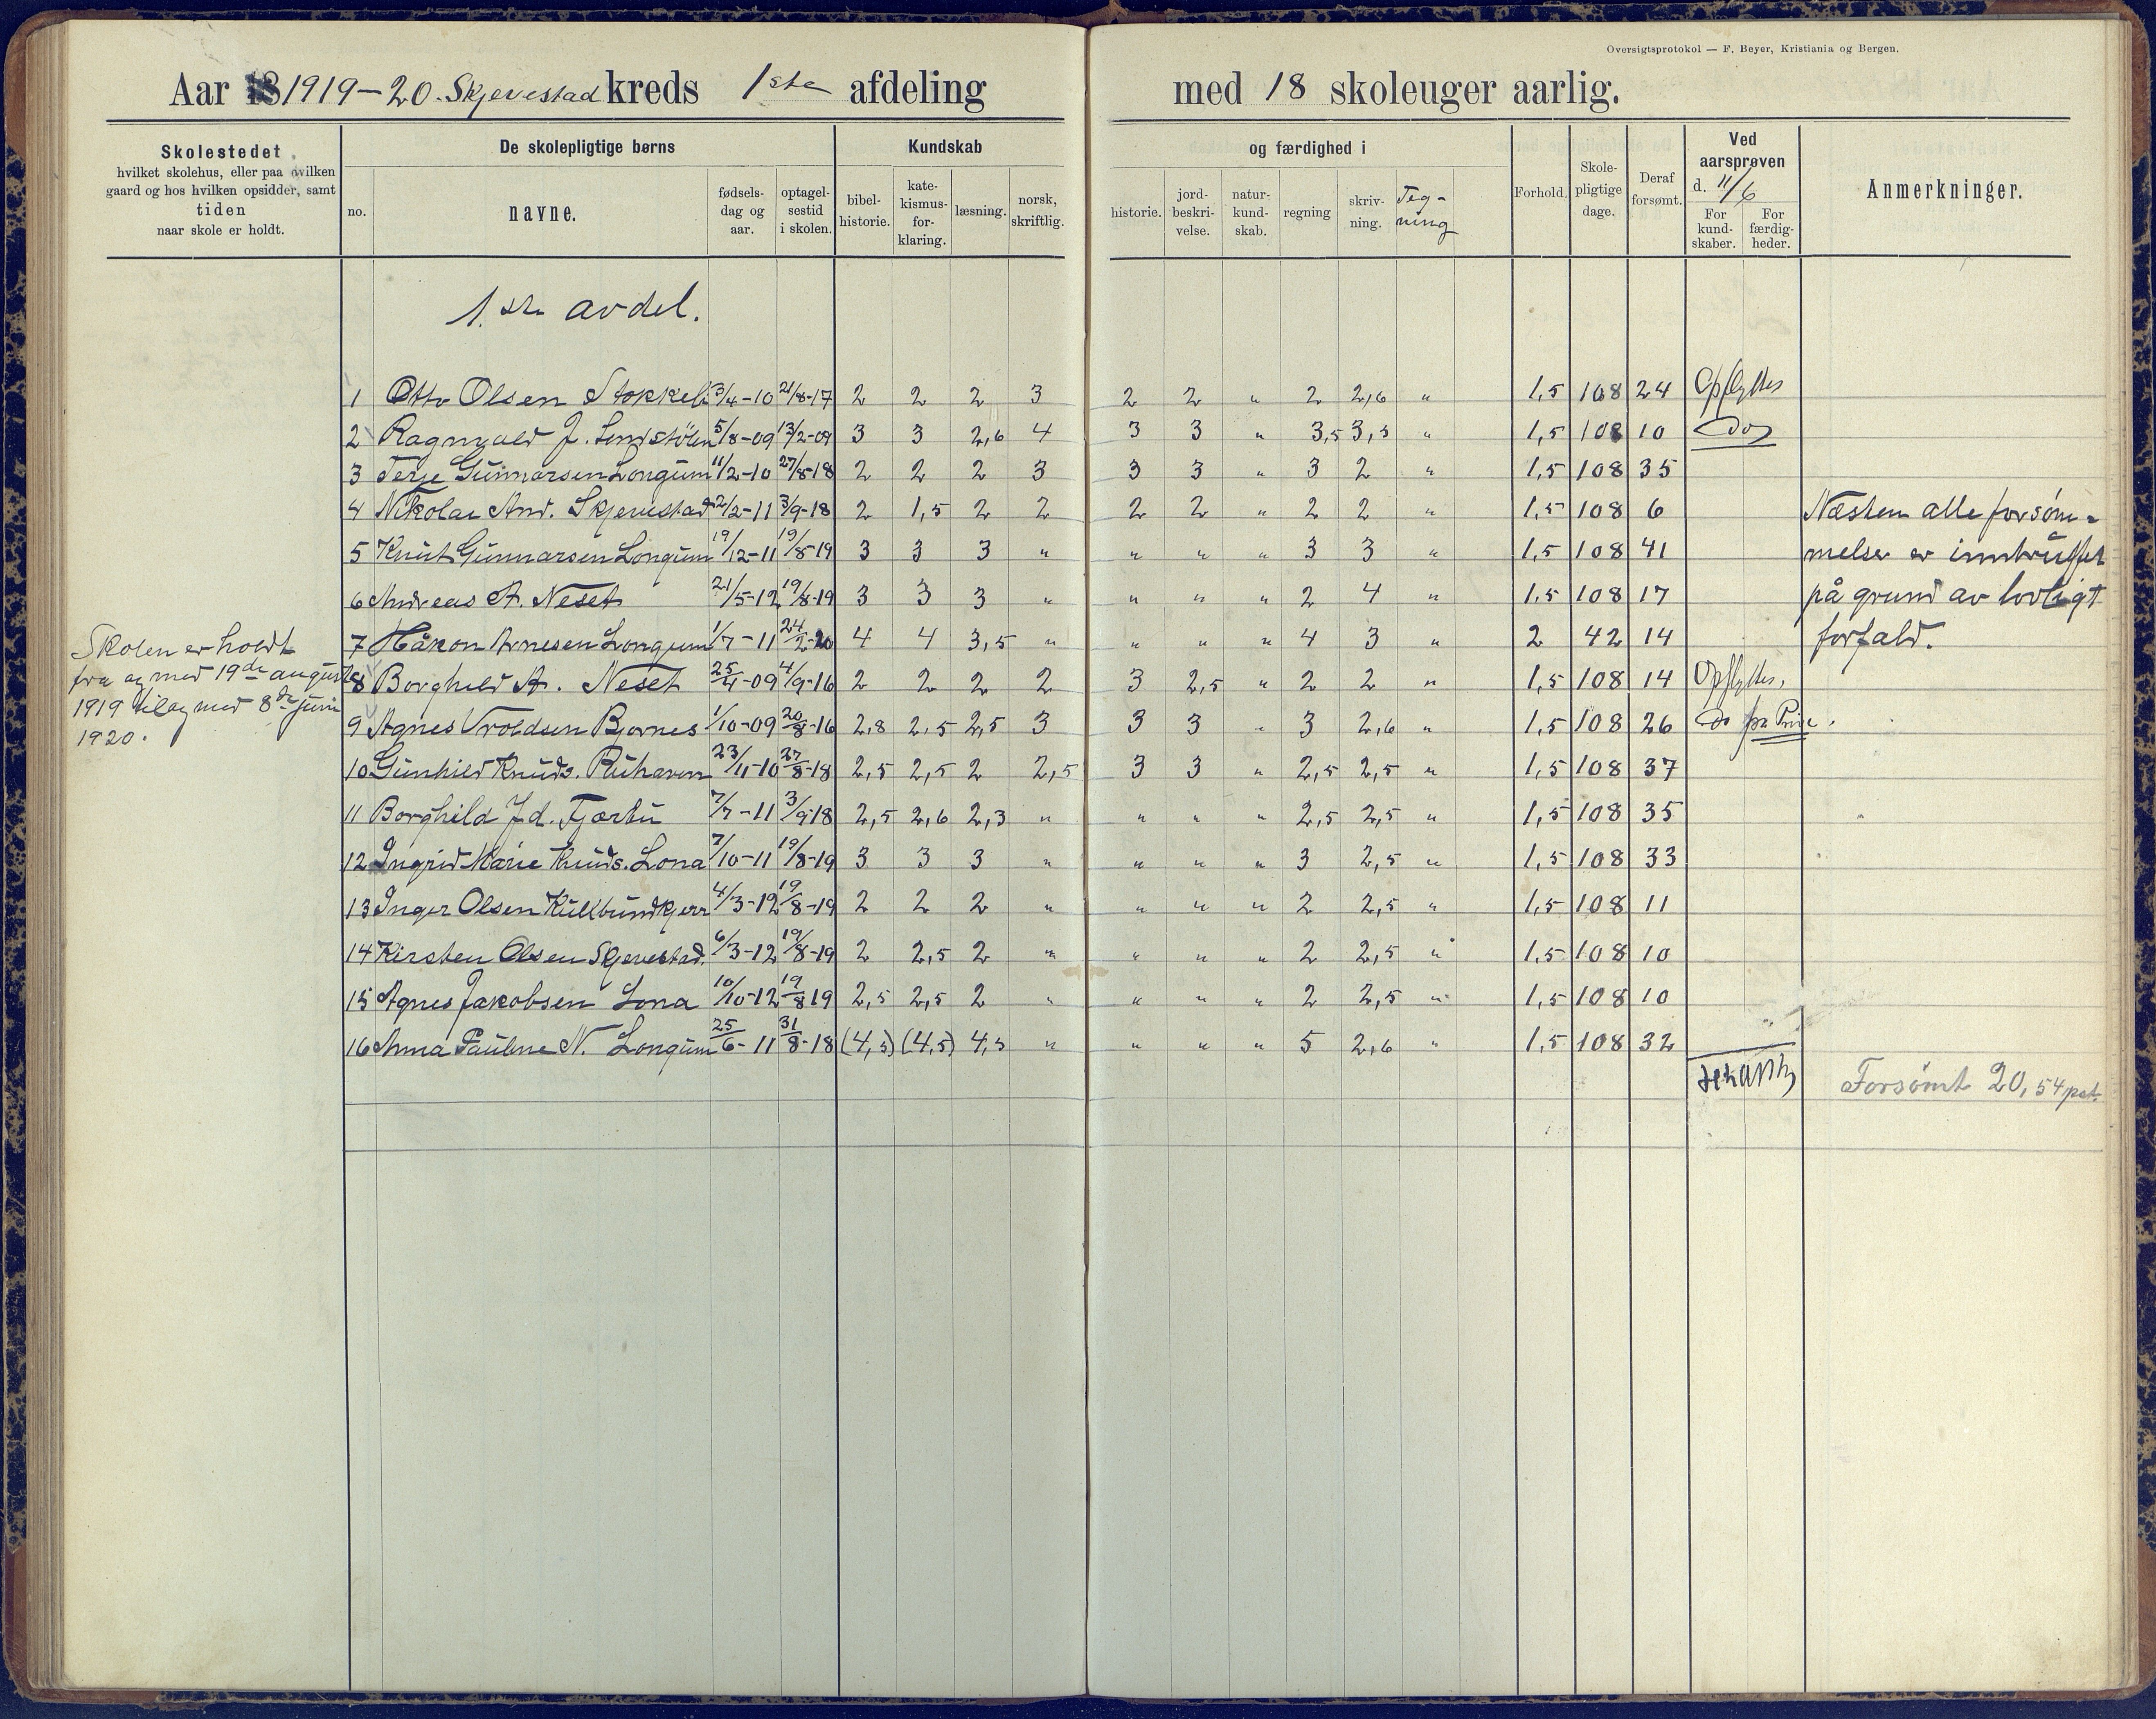 Oversigtsprotokol — F. Beyer, Kristiania og Bergen.
Aar 1919-20. Skjevestad kreds 1ste afdeling med 18 skoleuger aarlig.
Skolestedet
hvilket skolehus, eller paa hvilken
gaard og hos hvilken opsidder, samt
tiden
naar skole er holdt.
De skolepligtige børns
no.
navne.
fødsels-
dag og
aar.
optagel-
sestid
i skolen.
Kundskab
bibel-
historie.
kate-
kismus-
for-
klaring.
læsning.
norsk,
skriftlig.
og færdighed i
historie.
jord-
beskri-
velse.
natur-
kund-
skab.
regning
skriv-
ning.
Teg-
ning
Forhold.
Skole-
pligtige
dage.
Deraf
forsømt.
Ved
aarsprøven
d. 11/6
For
kund-
skaber.
For
færdig-
heder.
Anmerkninger.
1.ste avdel.
1 Otto Olsen Stokkeli 3/4-10 21/8-17 2 2 2 3 2 2 " 2 2,6 " 1,5 108 24 Opflyttes
2 Ragnvald J. 5/8-09 13/2-09 3 3 2,6 4 3 3 " 3,5 3,5 " 1,5 108 10 do
3 Terje Gunnarsen Longum 11/2-10 27/8-18 2 2 2 3 3 3 " 3 2 " 1,5 108 35
4 Nikolai And. Skjevestad 2/2-11 3/9-18 2 1,5 2 2 2 2 " 2 2 " 1,5 108 6
5 Knut Gunnarsen Longum 19/12-11 19/8-19 3 3 3 " " " " 3 3 " 1,5 108 41
6 Andreas A. Neset 21/5-12 19/8-19 3 3 3 " " " " 2 4 " 1,5 108 17
7 Håkon Arnesen Longum 1/7-11 24/2-20 4 4 3,5 " " " " 4 3 " 2 42 14
8 Borghild A. Neset 25/4-09 4/9-16 2 2 2 2 3 2,5 " 2 2 " 1,5 108 14 Opflyttes,
9 Agnes Vroldsen Bjornes 1/10-09 20/8-16 2,8 2,5 2,5 3 3 3 " 3 2,6 " 1,5 108 26 do fra
10 Gunhild Knuds. Ruhaven 23/11-10 27/8-18 2,5 2,5 2 2,5 3 3 " 2,5 2,5 " 1,5 108 37
11 Borghild Jd. Fjærbu 7/7-11 3/9-18 2,5 2,6 2,3 " " " " 2,5 2,5 " 1,5 108 35
12 Ingrid Marie Knuds. Lona 7/10-11 19/8-19 3 3 3 " " " " 3 2,5 " 1,5 108 33
13 Inger Olsen Kulbundkjerr 4/3-12 19/8-19 2 2 2 " " " " 2 2,5 " 1,5 108 11
14 Kirsten Olsen Skjevestad. 6/3-12 19/8-19 2 2,5 2 " " " " 2 2,5 " 1,5 108 10
15 Agnes Jakobsen Lona 10/10-12 19/8 19 2,5 2,5 2 " " " " 2 2,5 " 1,5 108 10
16 Anna Pauline N. Longum 25/6-11 31/8-18 (4,5) (4,5) 4,5 " " " " 5 2,6 " 1,5 108 32
Skolen er holdt
fra og med 19de august
1919 til og med 8de juni
1920.
Næsten alle forsøm-
melser er inntruffet
på grund av lovligt
forfald.
Forsömt 20,54 pct.